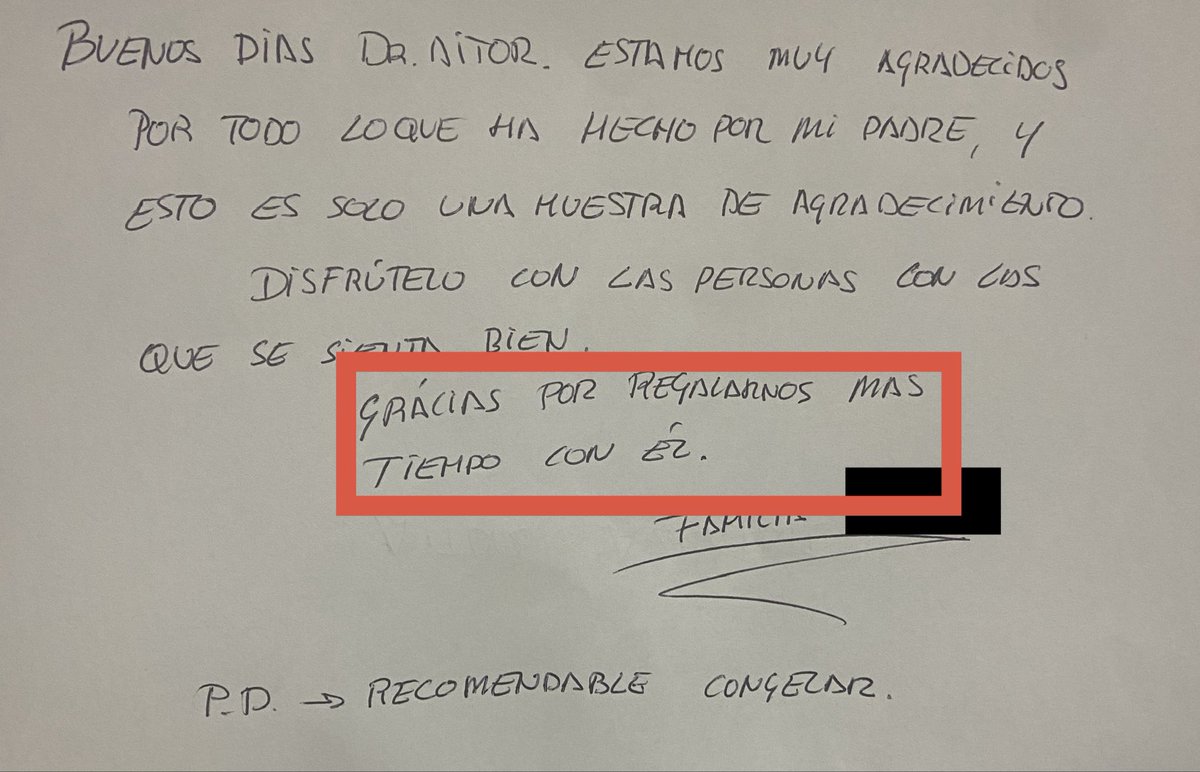 BUENOS DIAS DR. AITOR. ESTAMOS MUY AGRADECIDOS
POR TODO LO QUE HA HECHO POR MI PADRE, Y
ESTO ES SOLO UNA MUESTRA DE AGRADECIMIENTO.
DISFRÚTELO CON LAS PERSONAS CON LAS
QUE SE SIENTA BIEN.
GRÁCIAS POR REGALARNOS MAS
TIEMPO CON ÉL.
FAMILIA
P.D. → RECOMENDABLE CONGELAR.